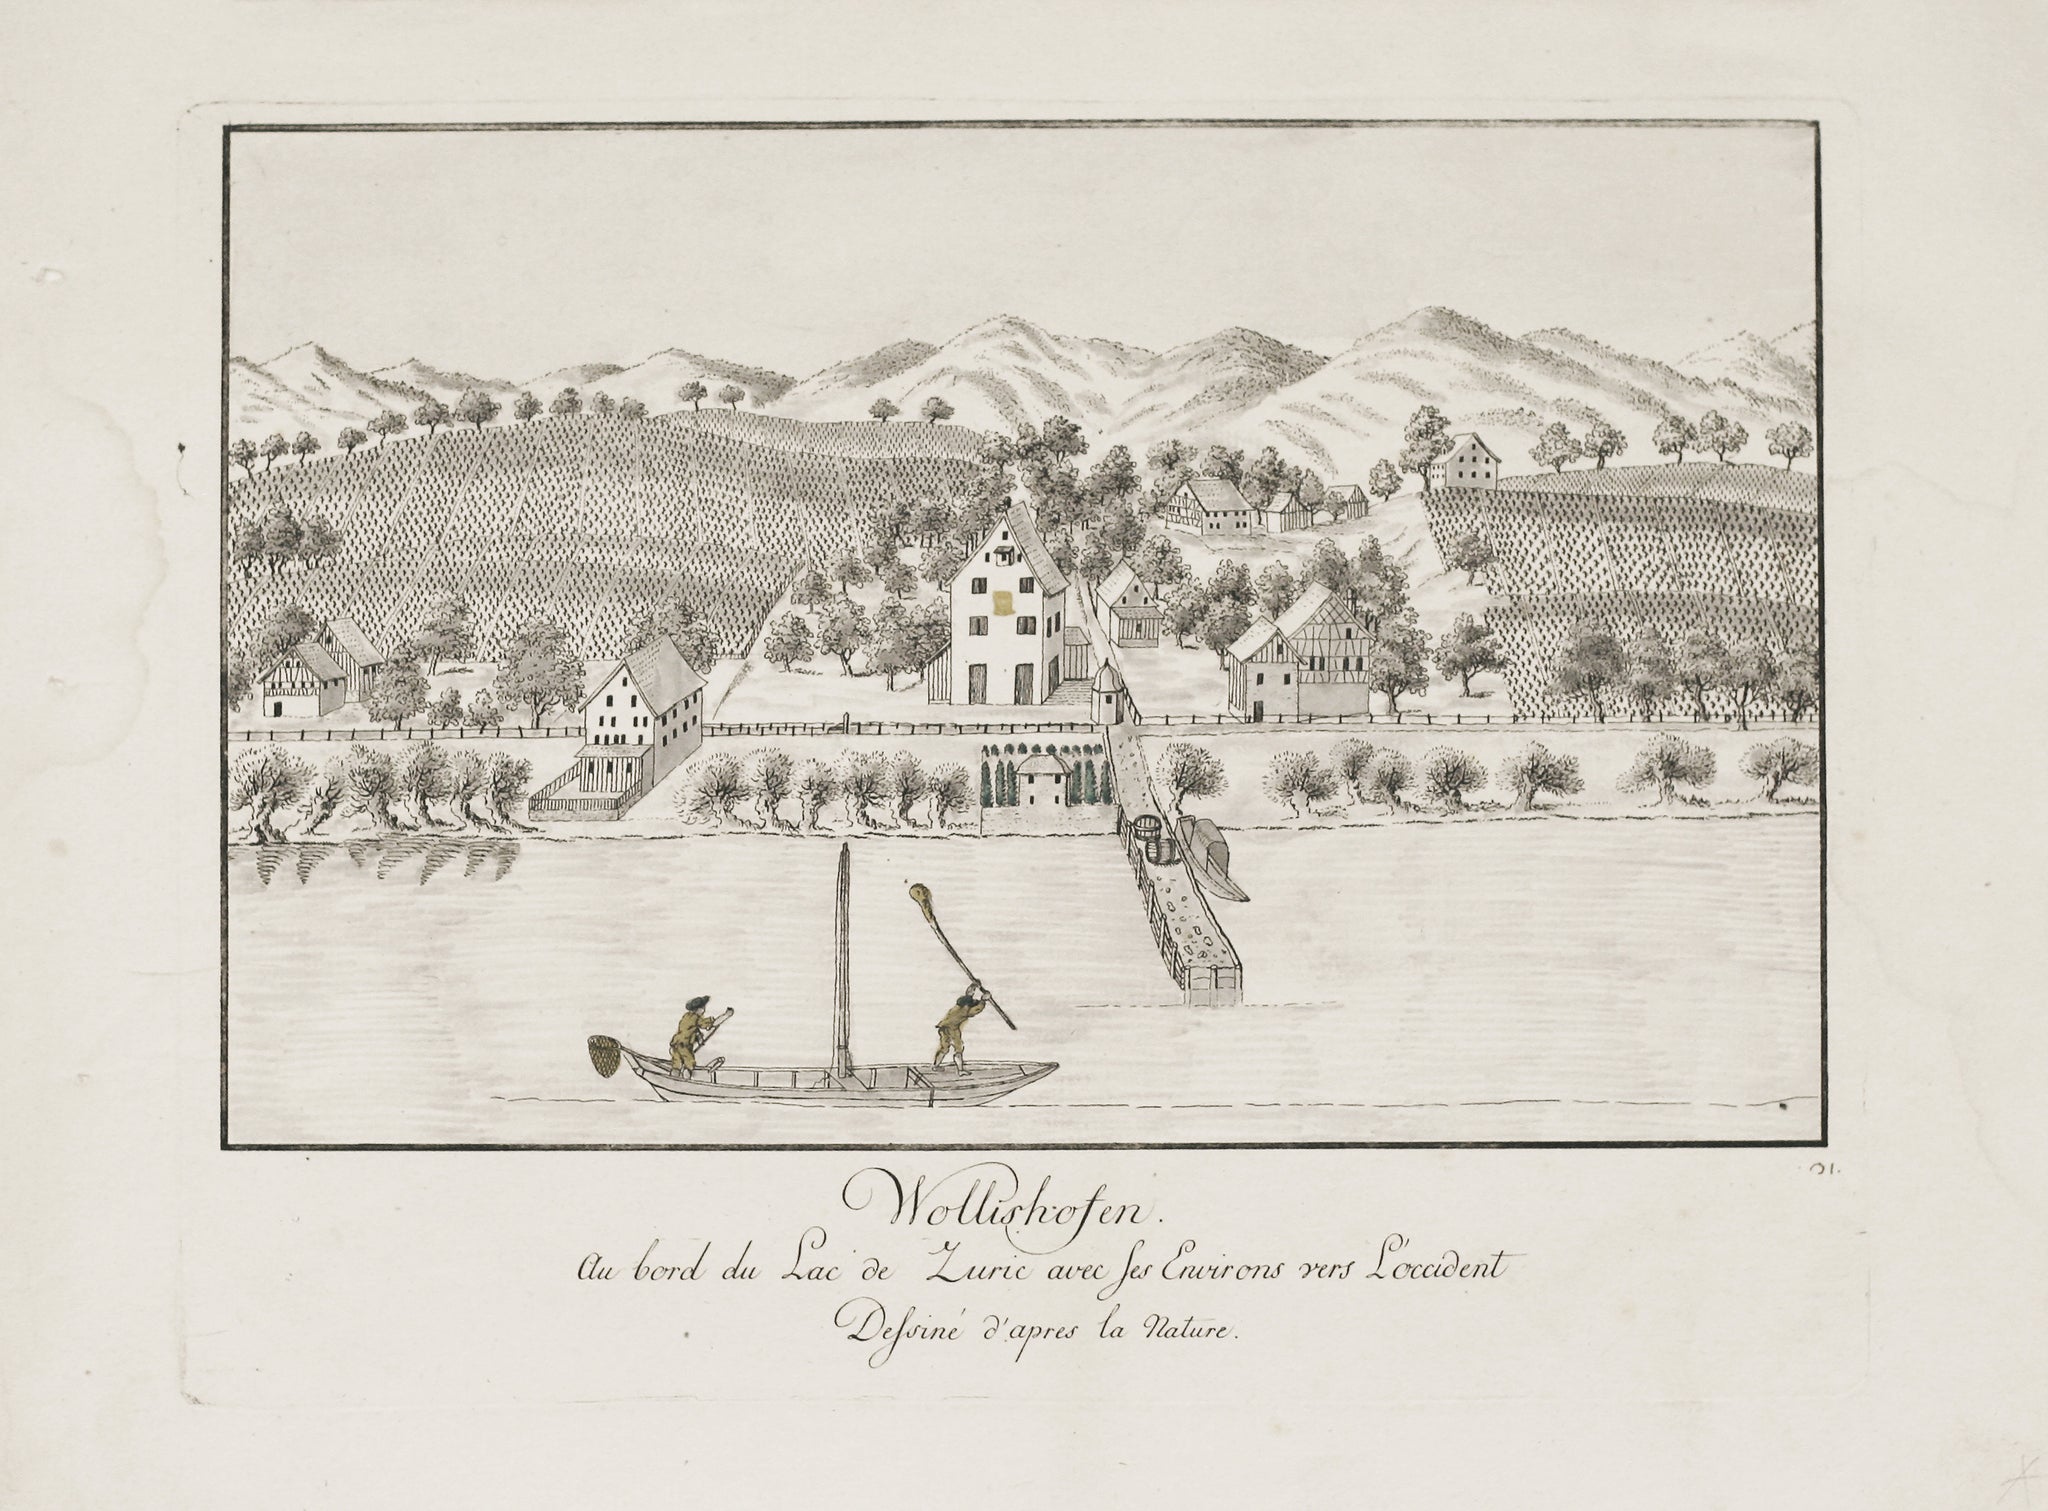 31.
Wollishofen.
Au bord du Lac de Zuric avec ſes Environs vers L'occident
Deſsiné d'apres la Nature.